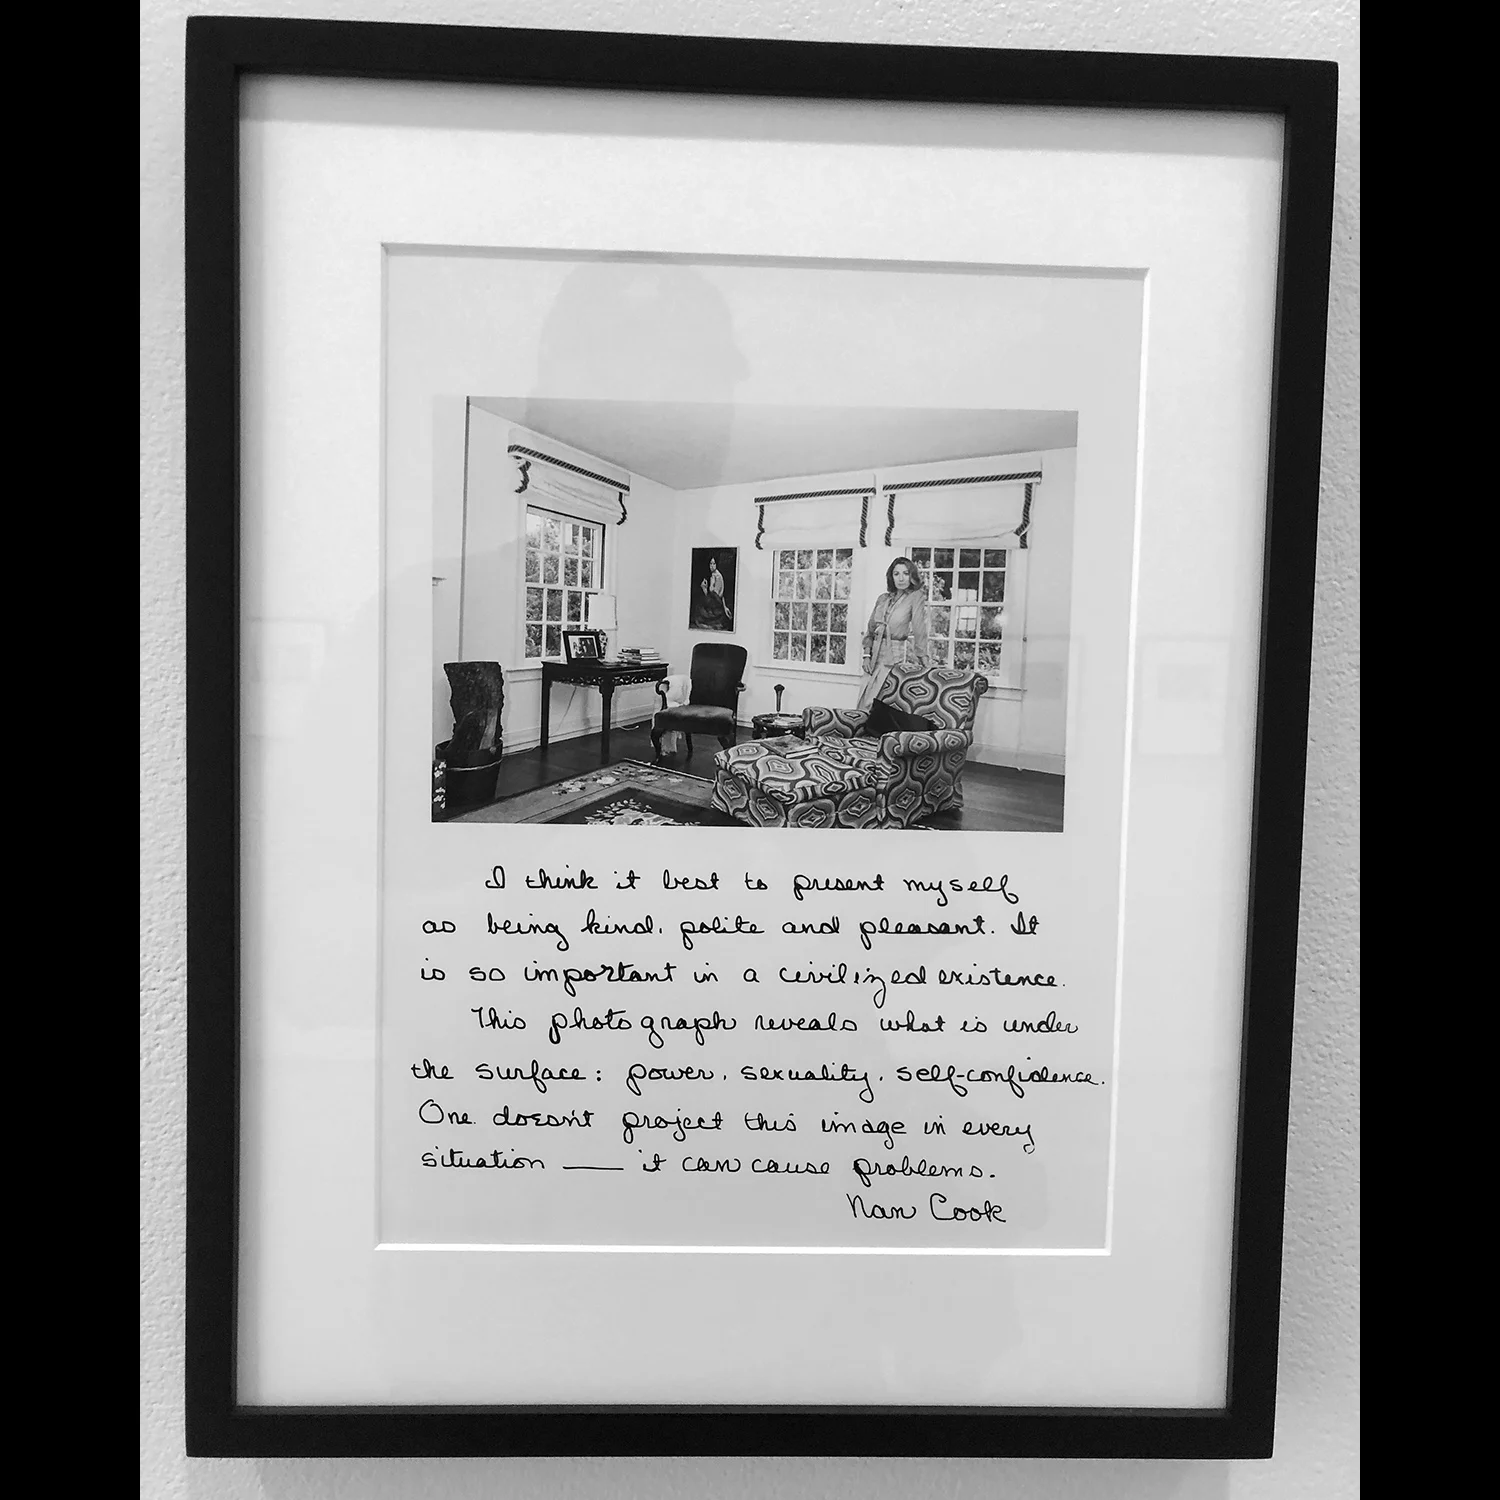 I think it best to present myself
as being kind, polite and pleasant. It
is so important in a civilized existence.
This photograph reveals what is under
the surface: power, sexuality, self-confidence.
One doesn't project this image in every
situation — it can cause problems.
Nan Cook